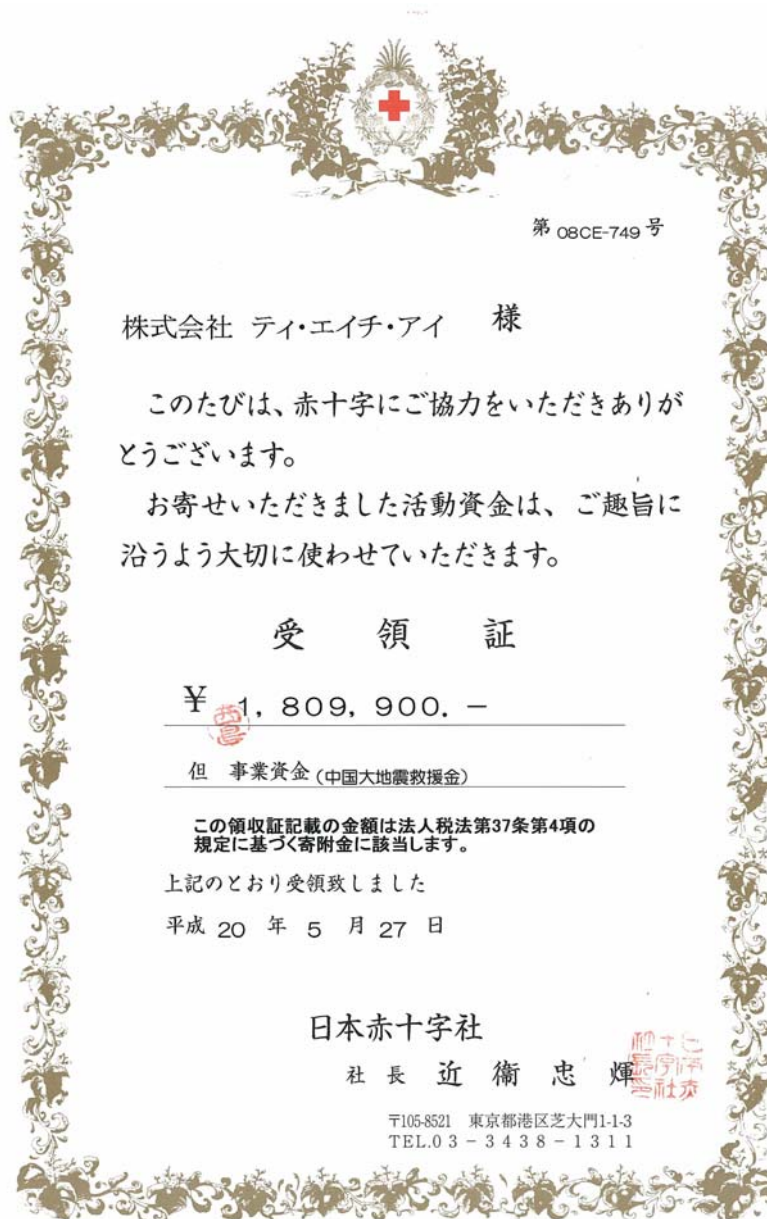 第 08CE-749 号
株式会社 ティ・エイチ・アイ 様
このたびは、赤十字にご協力をいただきありが
とうございます。
お寄せいただきました活動資金は、ご趣旨に
沿うよう大切に使わせていただきます。
受 領 証
¥ 1,809,900.-
但 事業資金(中国大地震救援金)
この領収証記載の金額は法人税法第37条第4項の
規定に基づく寄附金に該当します。
上記のとおり受領致しました
平成 20 年 5 月 27 日
日本赤十字社
社長 近衞忠輝
〒105-8521 東京都港区芝大門1-1-3
TEL.03-3438-1311